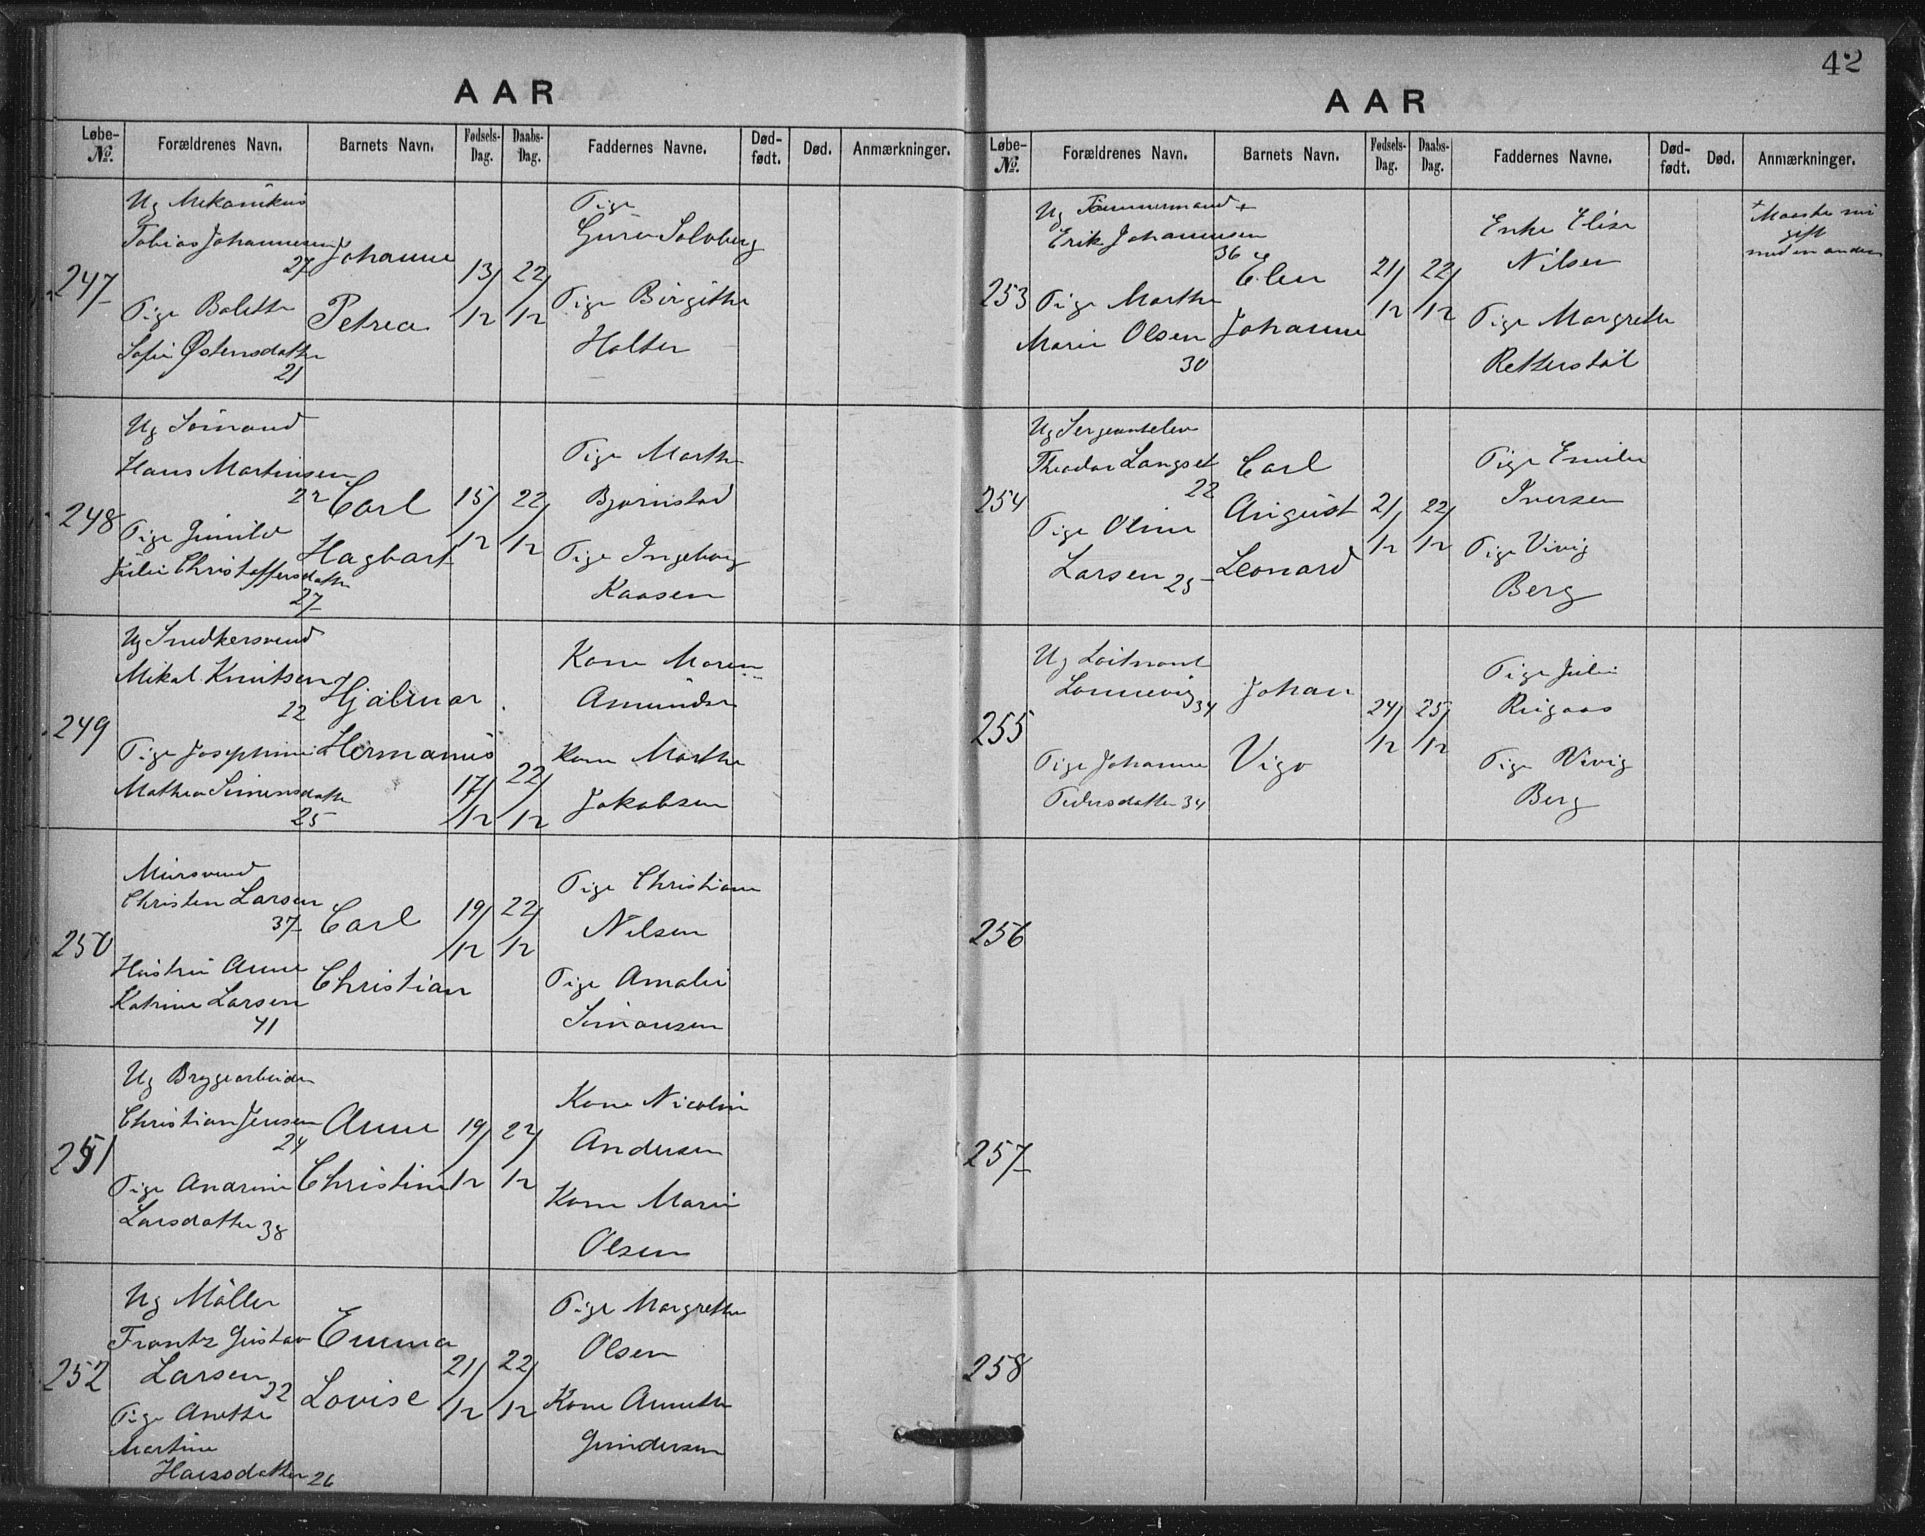 AAR
Løbe-No. Forældrenes Navn. Barnets Navn. Fødsels-Dag. Daabs-Dag. Faddernes Navne. Død-født. Død. Anmærkninger.
247
Ug Mekanikus
Tobias Johannesen
27
Tige Bolette
Sofie Østensdatter
21
Johanne
Petrea
13/12
22/12
Tige
Guro Solvberg
Tige Birgitte
Holter
248
Ug Sömand
Hans Martinsen
22
Tige Gunild
Julie Christoffersdatter
27
Carl
Hagbart
15/12
22/12
Tige Marthe
Bjørnstad
Tige Ingeborg
Kaasen
249
Ug Snedkersvend
Mikal Knutsen
22
Tige Josephine
Mathea Simensdatter
25
Hjalmar
Hermanus
17/12
22/12
Kone Maren
Amundsen
Kone Marthe
Jakobsen
250
Mursvend
Christen Larsen
37
Hustru Anne
Katrine Larsen
41
Carl
Christian
19/12
22/12
Tige Christiane
Nilsen
Tige Amalie
Simonsen
251
Ug Bryggearbeider
Christian Jensen
24
Tige Andrine
Larsdatter 38
Anne
Christine
19/12
22/12
Kone Nicoline
Andersen
Kone Marie
Olsen
252
Ug Möller
Frantz Gustav
Larsen
22
Tige Anette
Martine
Hansdatter 26
Emma
Lovise
21/12
22/12
Tige Margrethe
Olsen
Kone Annette
Gundersen
42
AAR
Løbe-No. Forældrenes Navn. Barnets Navn. Fødsels-Dag. Daabs-Dag. Faddernes Navne. Død-født. Død. Anmærkninger.
253
Ug Tömmermand +
Erik Johannesen
36
Tige Marthe
Marie Olsen
30
Elen
Johanne
21/12
22/12
Enke Elise
Nilsen
Tige Margrethe
Retterstøl
+ Maaske nu
gift
med en anden
254
Ug Sergeantelev
Theodor Langset
22
Tige Oline
Larsen 25
Carl
August
Leonard
21/12
22/12
Tige Emilie
Iversen
Tige Vivig
Berg
255
Ug Loitnant
Lonnevig 34
Tige Johanne
Pedersdatter 34
Johan
Vigo
24/12
25/12
Tige Julie
Rugaas
Tige Vivig
Berg
256
257
258